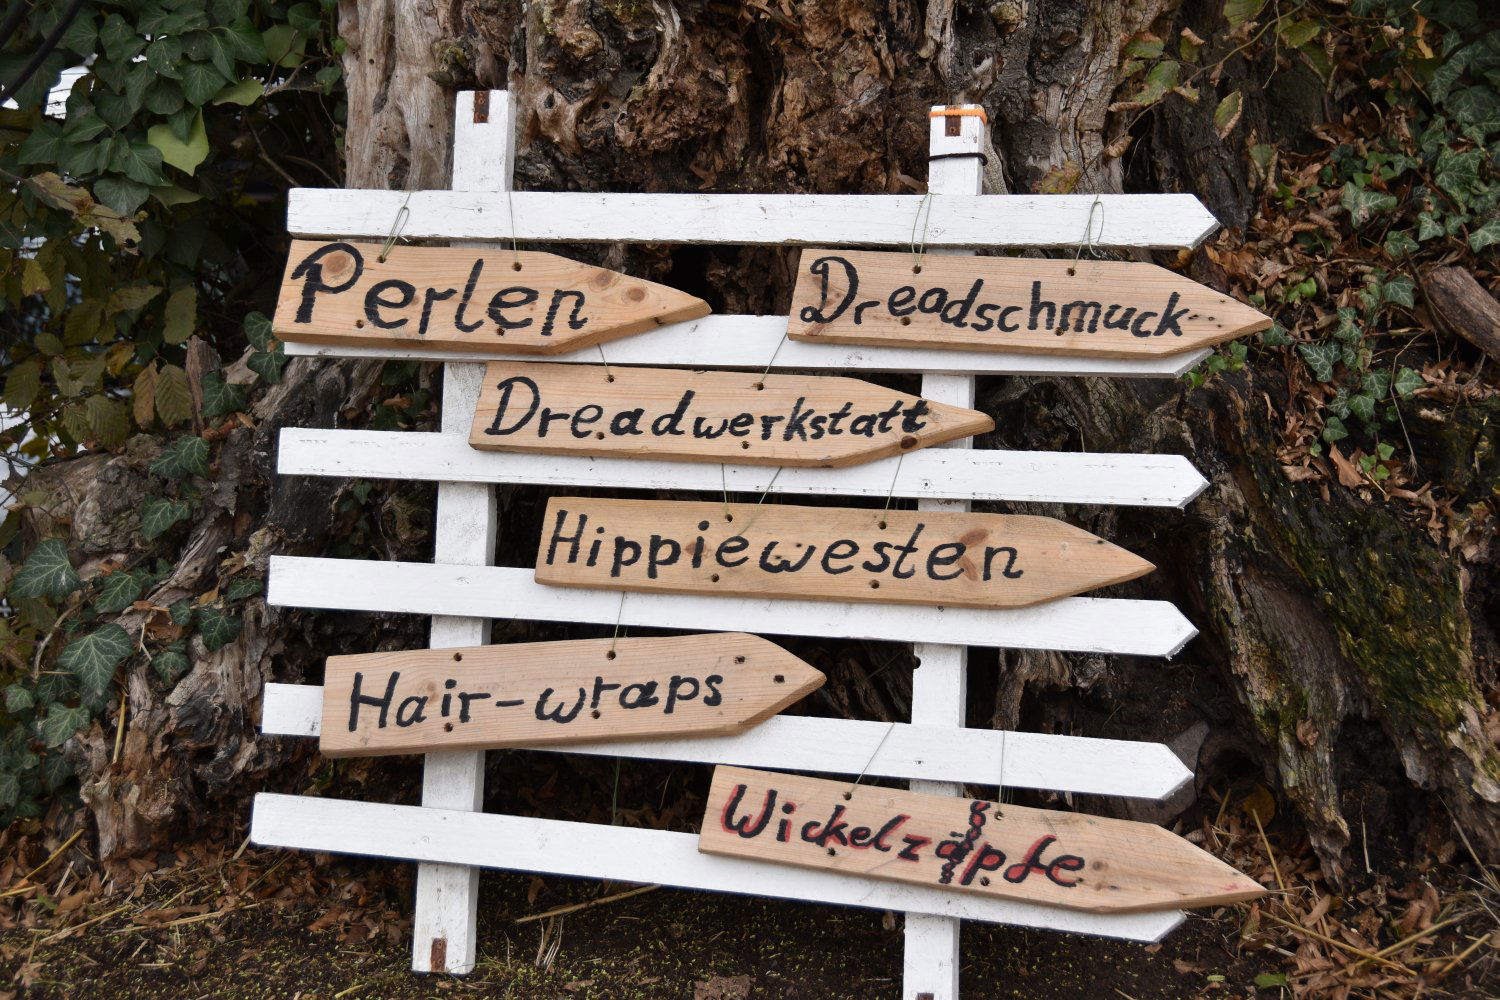 Perlen
Dreadschmuck
Dreadwerkstatt
Hippiewesten
Hair-wraps
Wickelzöpfe